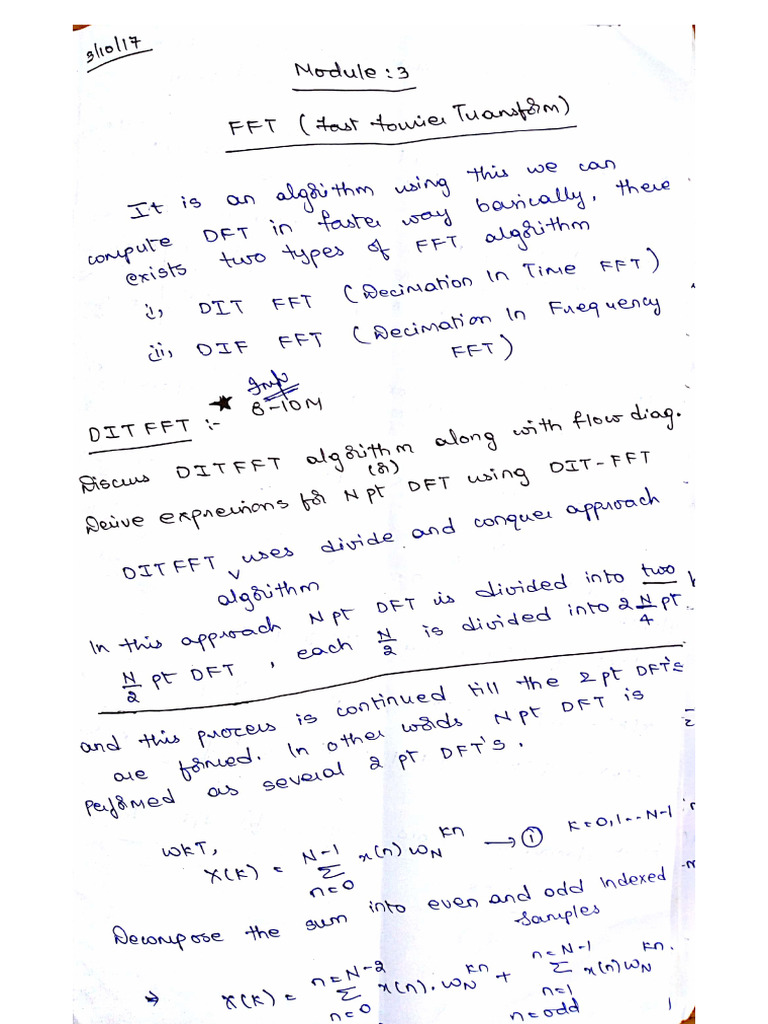 3/10/17
Module: 3
FFT (Fast Fourier Transform)
It is an algorithm using this we can
compute DFT in faster way basically, there
exists two types of FFT algorithm
i, DIT FFT (Decimation In Time FFT)
ii, DIF FFT (Decimation In Frequency
FFT)
Imp
DITFFT :- ★ 8-10M
Discuss DITFFT algorithm along with flow diag.
(or)
Derive expressions for N pt DFT using DIT-FFT
DITFFT uses divide and conquer approach
algorithm
In this approach N pt DFT is divided into two
N/2 pt DFT, each N/2 is divided into 2 N/4 pt.
and this process is continued till the 2 pt DFT's
are formed. In other words N pt DFT is
performed as several 2 pt DFT's.
WKT,
X(k) = Σ_{n=0}^{N-1} x(n) W_N^{kn} → ① k=0,1--N-1
Decompose the sum into even and odd indexed
samples
→ X(k) = Σ_{n=0}^{n=N-2} x(n). W_N^{kn} + Σ_{n=1}^{n=N-1} x(n) W_N^{kn}.
n=odd